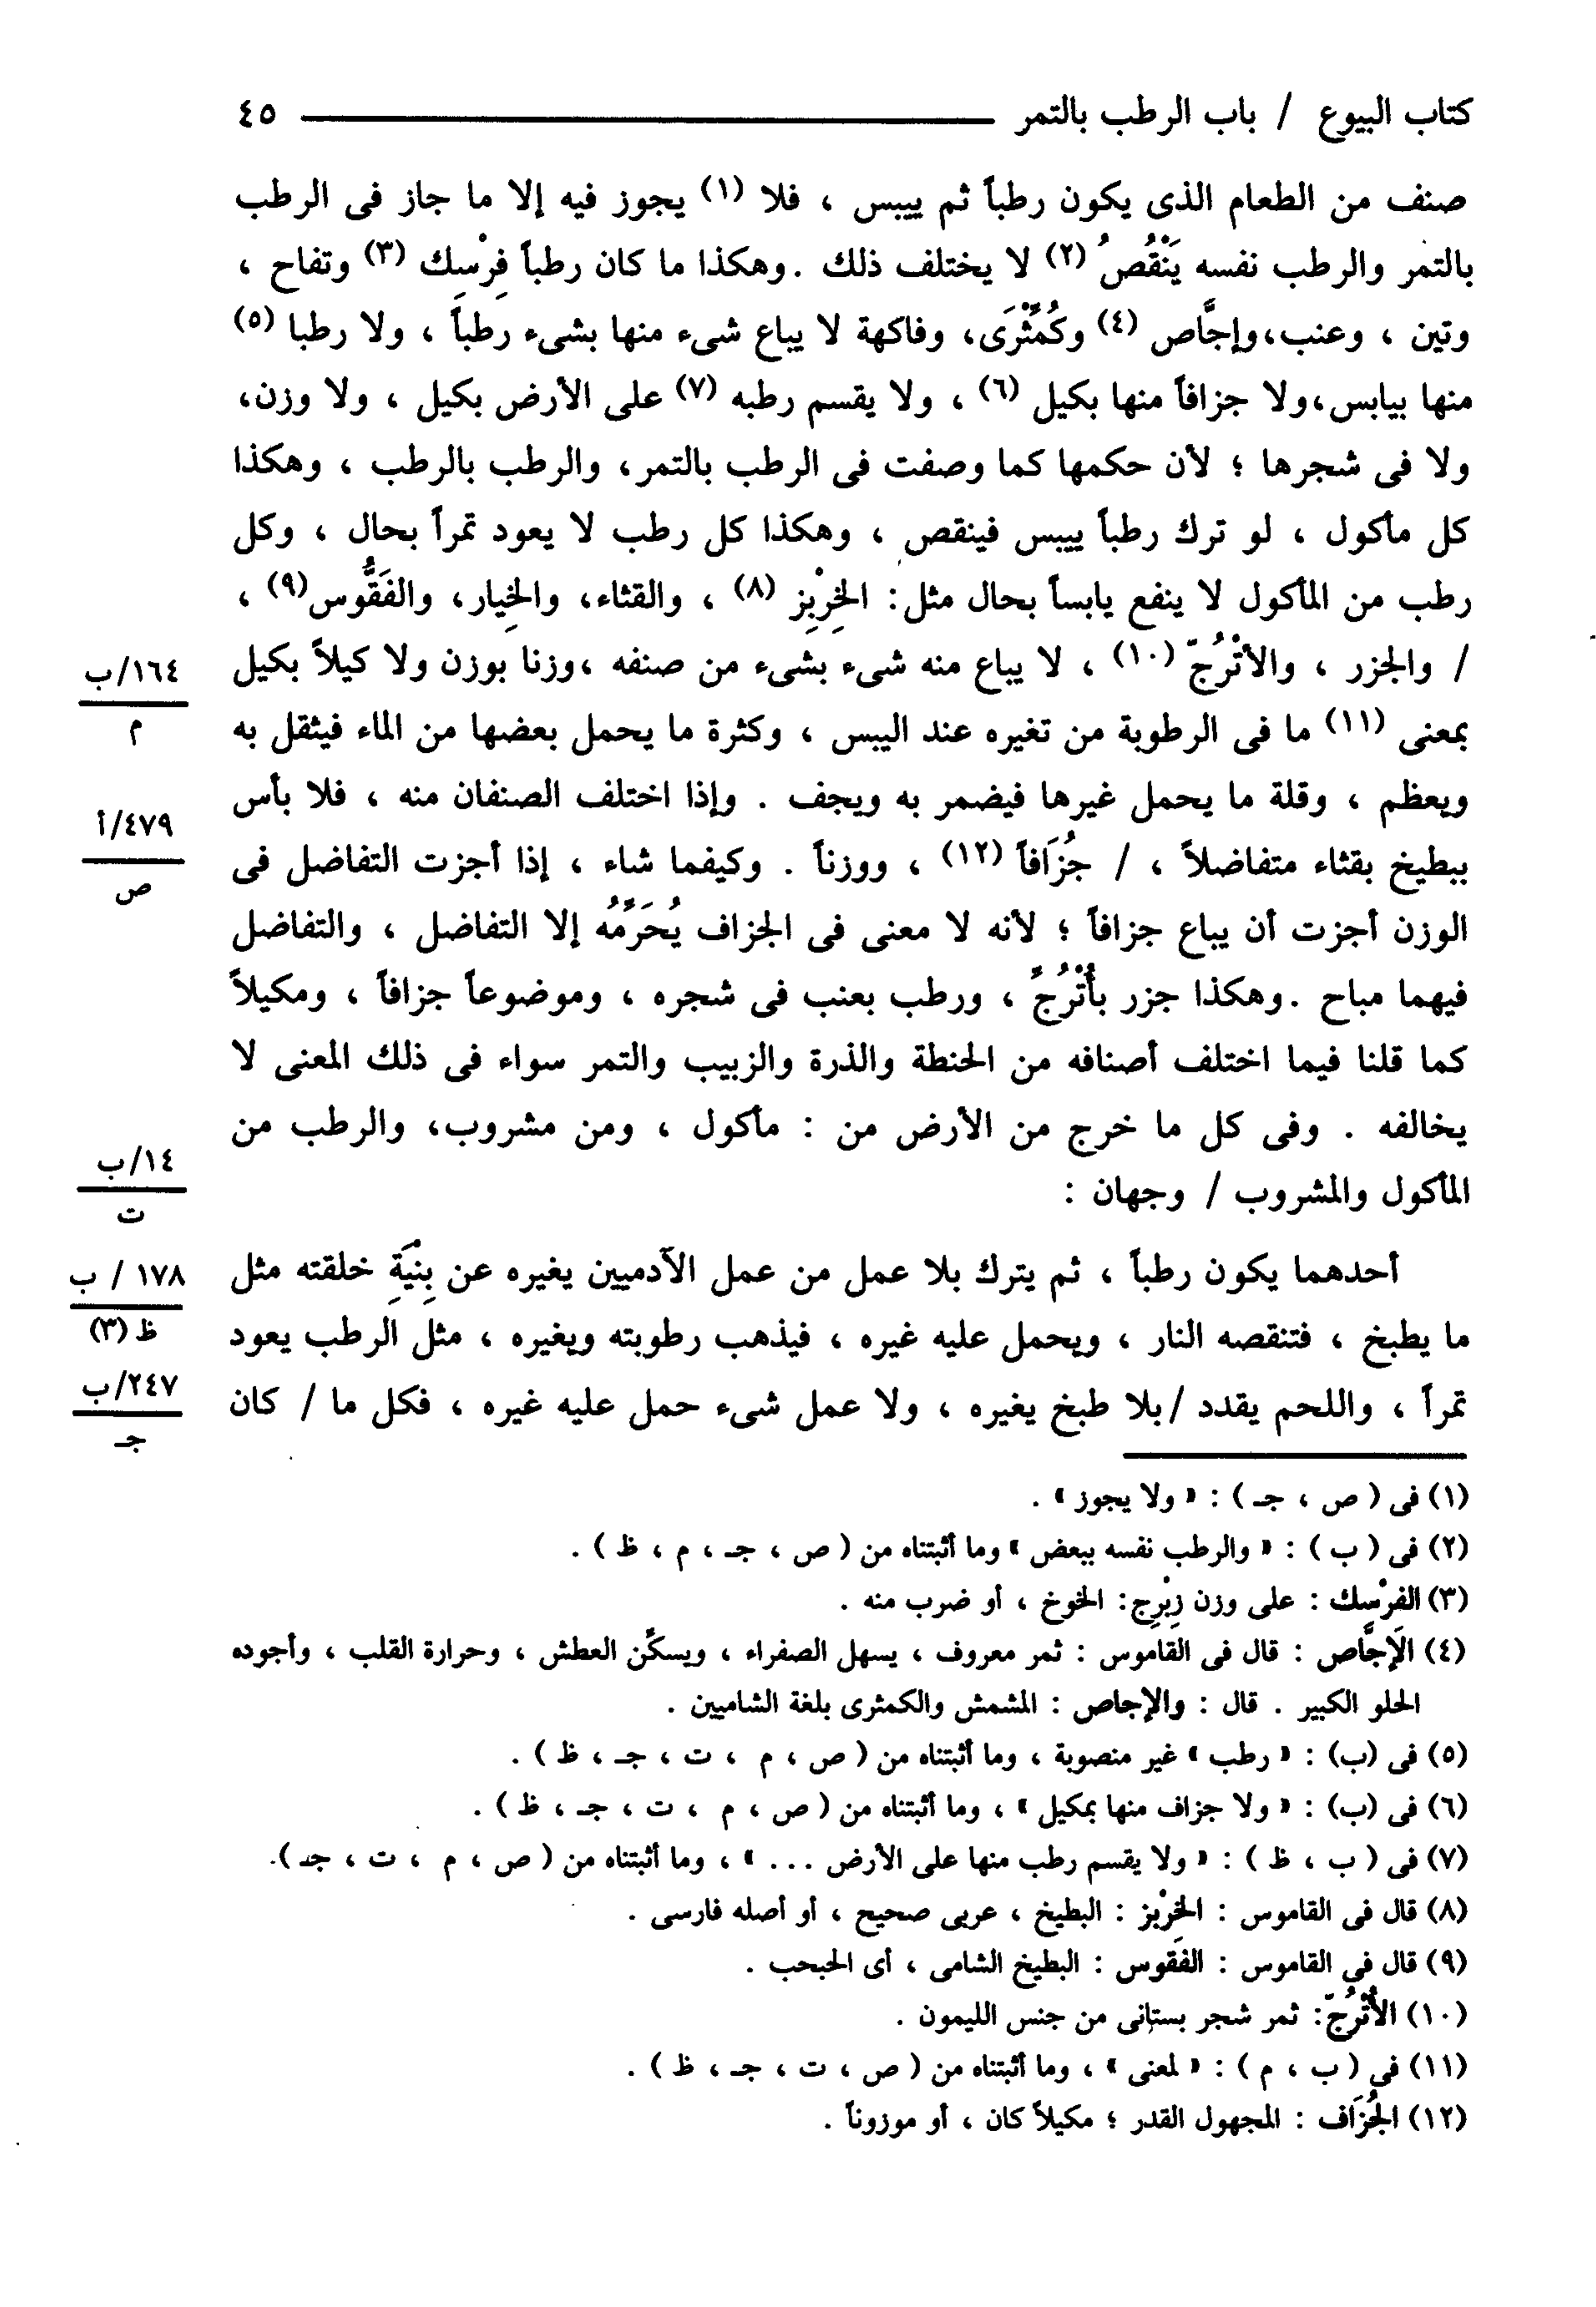 كتاب البيوع / باب الرطب بالتمر ٤٥
صنف من الطعام الذى يكون رطباً ثم ييبس ، فلا (١) يجوز فيه إلا ما جاز فى الرطب
بالتمر والرطب نفسه يَنْقُصُ (٢) لا يختلف ذلك . وهكذا ما كان رطباً فِرْسِك (٣) وتفاح ،
وتين ، وعنب،وإجَّاص (٤) وكُمَّثْرَى، وفاكهة لا يباع شىء منها بشىء رطباً ، ولا رطبا (٥)
منها بيابس،ولا جزافاً منها بكيل (٦) ، ولا يقسم رطبه (٧) على الأرض بكيل ، ولا وزن،
ولا فى شجرها ؛ لأن حكمها كما وصفت فى الرطب بالتمر، والرطب بالرطب ، وهكذا
كل مأكول ، لو ترك رطباً ييبس فينقص ، وهكذا كل رطب لا يعود تمراً بحال ، وكل
رطب من المأكول لا ينفع يابساً بحال مثل: الخِرْبِز (٨) ، والقثاء، والخِيار، والفَقُّوس(٩) ،
/ والجزر ، والأتْرُجّ (١٠) ، لا يباع منه شىء بشىء من صنفه ،وزنا بوزن ولا كيلاً بكيل
١٦٤/ب
م
بمعنى (١١) ما فى الرطوبة من تغيره عند اليبس ، وكثرة ما يحمل بعضها من الماء فيثقل به
ويعظم ، وقلة ما يحمل غيرها فيضمر به ويجف . وإذا اختلف الصنفان منه ، فلا بأس
٤٧٩/أ
ص
ببطيخ بقثاء متفاضلاً ، / جُزَافاً (١٢) ، ووزناً . وكيفما شاء ، إذا أجزت التفاضل فى
الوزن أجزت أن يباع جزافاً ؛ لأنه لا معنى فى الجزاف يُحَرِّمُه إلا التفاضل ، والتفاضل
فيهما مباح .وهكذا جزر بأُتْرُجٍّ ، ورطب بعنب فى شجره ، وموضوعاً جزافاً ، ومكيلاً
كما قلنا فيما اختلف أصنافه من الحنطة والذرة والزبيب والتمر سواء فى ذلك المعنى لا
يخالفه . وفى كل ما خرج من الأرض من : مأكول ، ومن مشروب، والرطب من
١٤/ب
ت
المأكول والمشروب / وجهان :
أحدهما يكون رطباً ، ثم يترك بلا عمل من عمل الآدميين يغيره عن بِنْيَةِ خلقته مثل
١٧٨ / ب
ظ (٣)
ما يطبخ ، فتنقصه النار ، ويحمل عليه غيره ، فيذهب رطوبته ويغيره ، مثل الرطب يعود
تمراً ، واللحم يقدد /بلا طبخ يغيره ، ولا عمل شىء حمل عليه غيره ، فكل ما / كان
٢٤٧/ب
جـ
(١) فى ( ص ، جـ ) : « ولا يجوز » .
(٢) فى ( ب ) : « والرطب نفسه ببعض » وما أثبتناه من ( ص ، جـ ، م ، ظ ) .
(٣) الفِرْسِك : على وزن زِبْرِج: الخوخ ، أو ضرب منه .
(٤) الإجَّاص : قال فى القاموس : ثمر معروف ، يسهل الصفراء ، ويسكِّن العطش ، وحرارة القلب ، وأجوده
الحلو الكبير . قال : والإجاص : المشمش والكمثرى بلغة الشاميين .
(٥) فى (ب) : « رطب » غير منصوبة ، وما أثبتناه من ( ص ، م ، ت ، جـ ، ظ ) .
(٦) فى (ب) : « ولا جزاف منها بمكيل » ، وما أثبتناه من ( ص ، م ، ت ، جـ ، ظ ) .
(٧) فى ( ب ، ظ ) : « ولا يقسم رطب منها على الأرض ... » ، وما أثبتناه من ( ص ، م ، ت ، جـ ).
(٨) قال فى القاموس : الخِرْبِز : البطيخ ، عربى صحيح ، أو أصله فارسى .
(٩) قال فى القاموس : الفَقوس : البطيخ الشامى ، أى الحبحب .
(١٠) الأُتْرُجّ: ثمر شجر بستانى من جنس الليمون .
(١١) فى ( ب ، م ) : « لمعنى » ، وما أثبتناه من ( ص ، ت ، جـ ، ظ ) .
(١٢) الجُزَاف : المجهول القدر ؛ مكيلاً كان ، أو موزوناً .